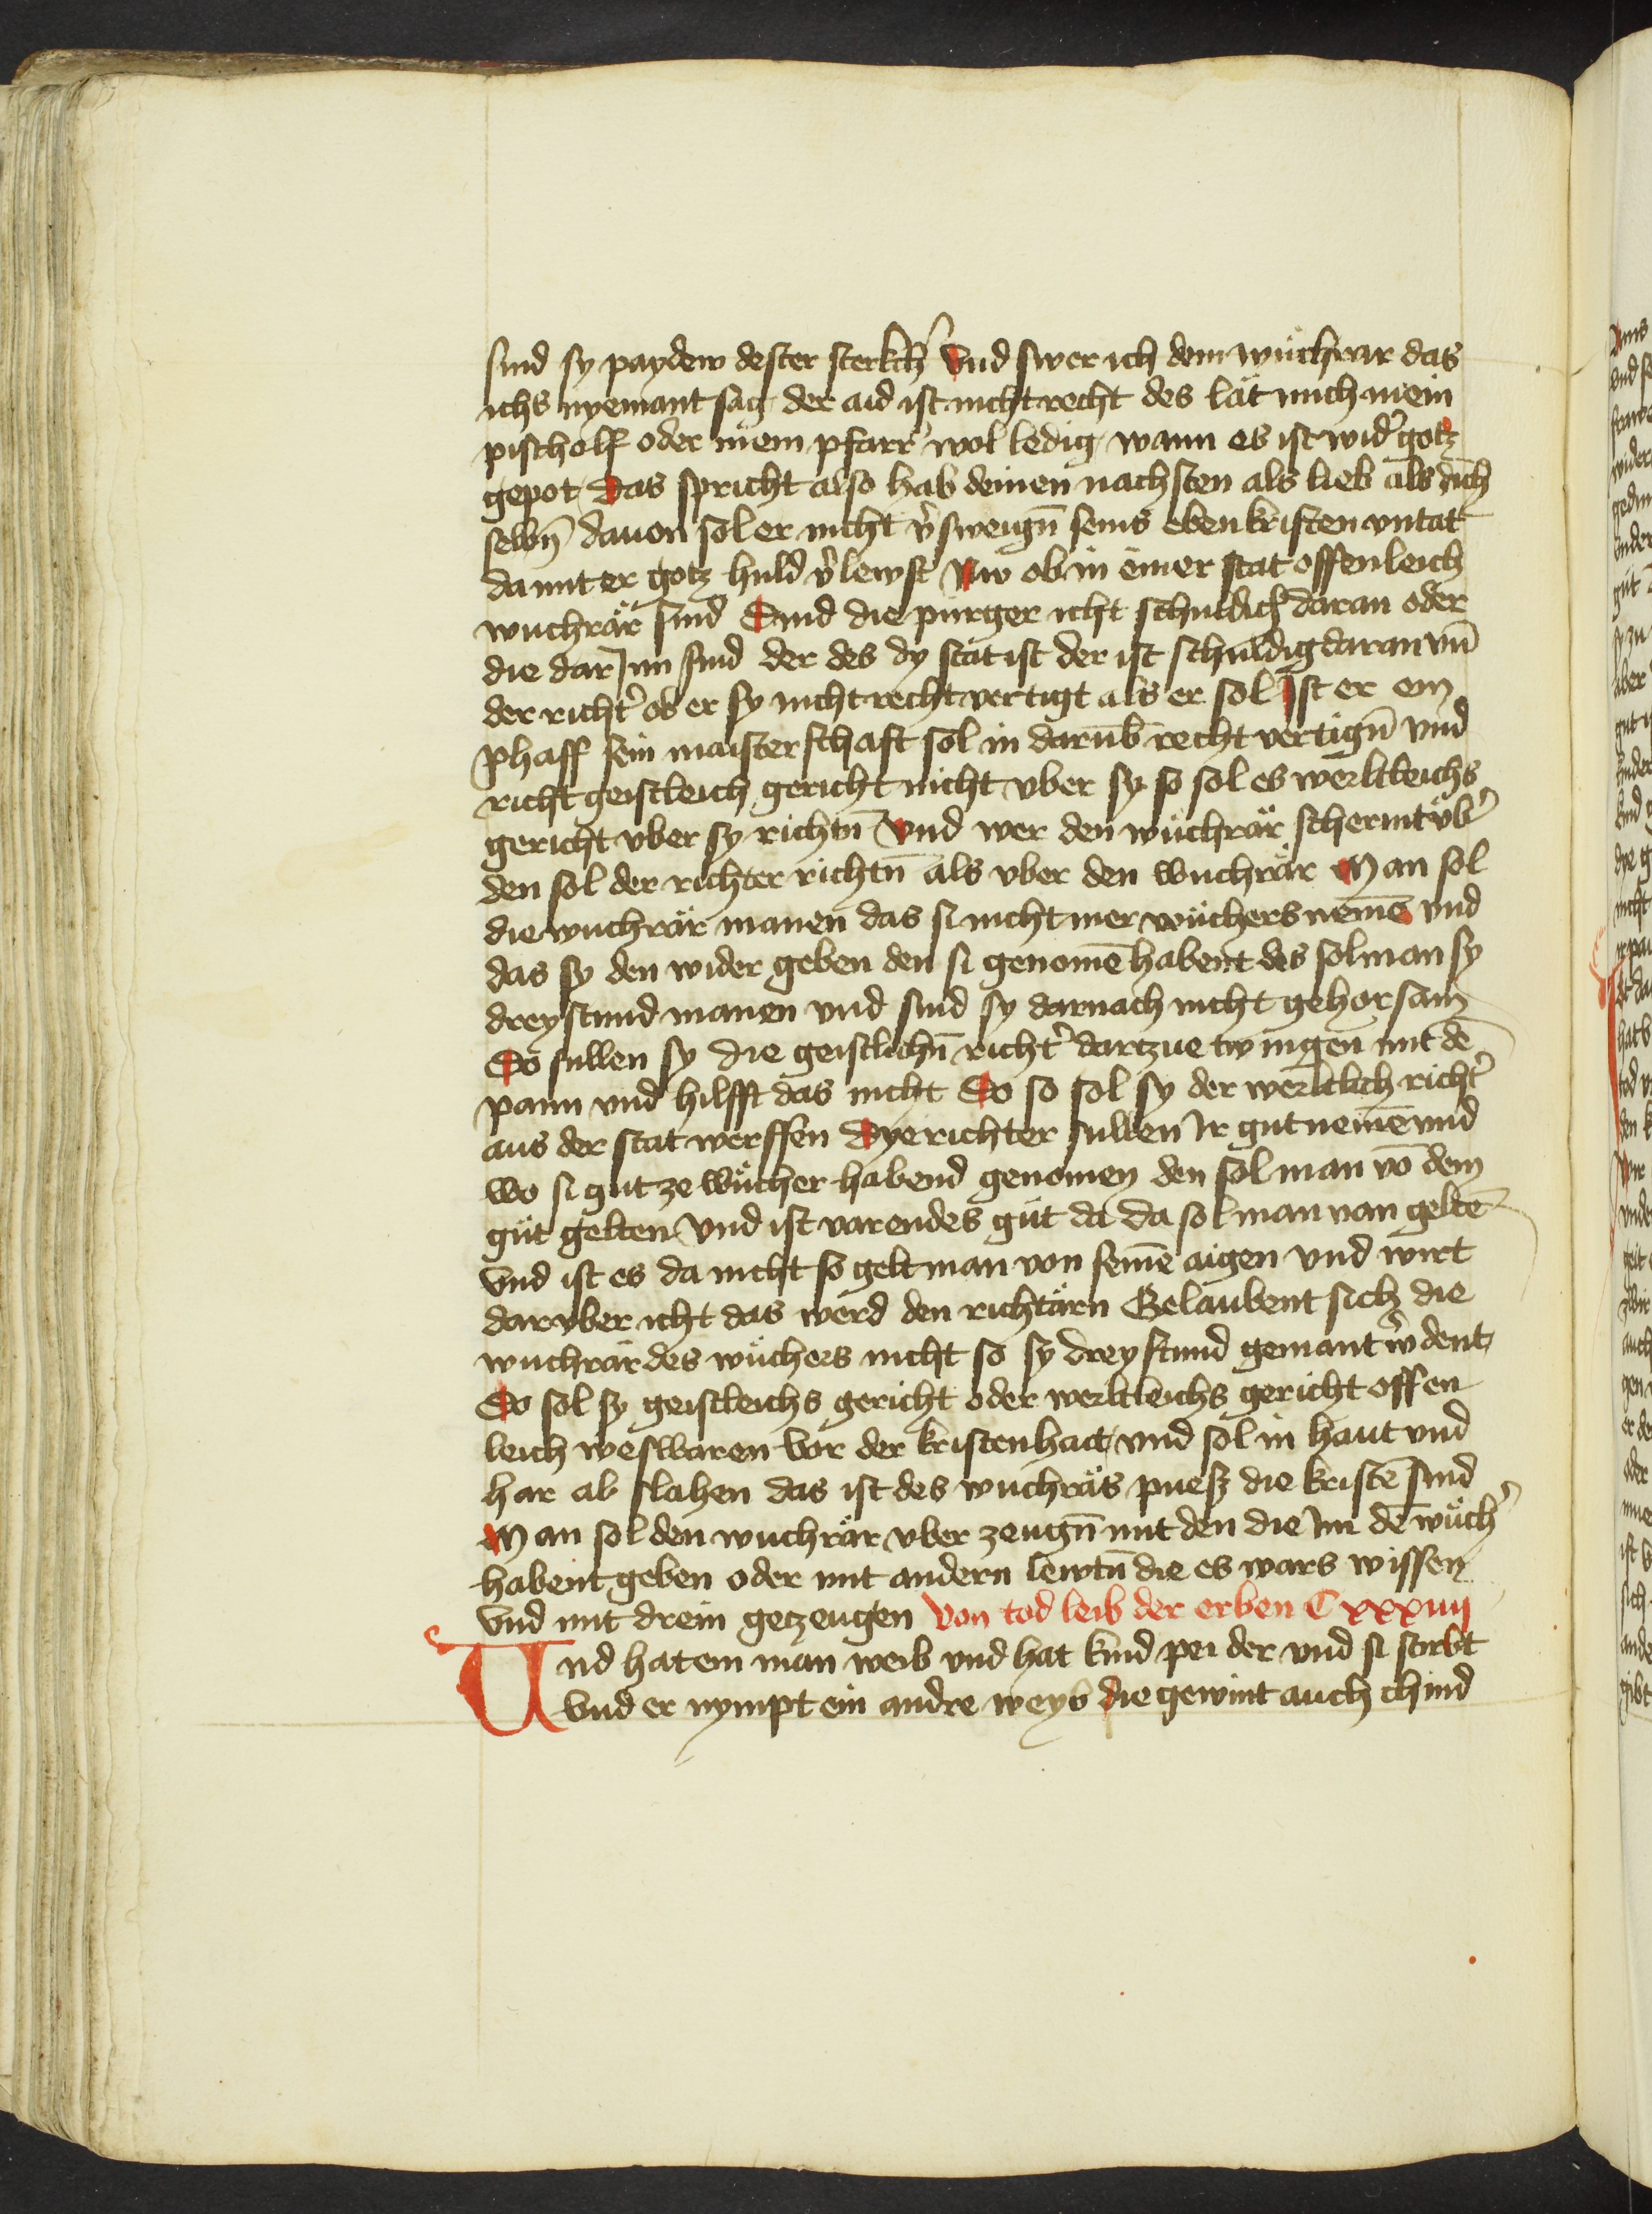 sind sy paydew dester sterkch̉ Vnd swer ich dem wuͤchrar das
ichs nyemant sag der aid ist nicht recht des lät mich mein
pischolf oder mein pfarr̉ wol ledig wann es ist wid̉ gotz
gepot Das spricht also hab deinen nachsten als lieb als dich
selbn̄ dauon sol er nicht v̉sweign̄ seins ebenkristen vntat
da mit er gotz huld v̉lewst Nw ob in einer stat offenleich
wuchrär sind Sind die purger icht schuldich daran oder
die dar Jnn sind der des dy stat ist der ist schuldig daran vn̄
der richt̉ ob er sy nicht recht vertigt als er sol Jst er ein
phaff sein maisterschaft sol in darub̄ recht vertign̄ vnd
richt geistleich gericht nicht vber sy so sol es werltleichs
gericht vber sy richtn̄ Vnd wer den wuchrär schermt vb̉
den sol der richter richtn̄ als vber den wuchrär Man sol
die wuchrär manen das si nicht mer wuͤchers neme̅ vnd
das sy den wider geben den si genome̅ habent des sol man sy
dreystund manen vnd sind sy darnach nicht gehorsam
So sullen sy die geistlichn̄ richt̉ dartzue twingen mit de̅
pann vnd hilfft das nicht So so sol sy der werltlich richt̉
aus der stat werffen Dye richter sullen Jr gut neme̅ vnd
wo si gut ze wuͤcher habend genomen den sol man vo̅ dem
guͤt gelten Vnd ist varendes guͤt da da sol man van gelte̅
Vnd ist es da nicht so gelt man von seine̅ aigen Vnd wirt
darvber icht das werd den richtärn Gelaubent sich die
wuchrär des wuͤchers nicht so sy dreystund gemant w̉dent
So sol sy geistleichs gericht oder werltleichs gericht offen
leich weslbaren vor der kristenhait vnd sol in haut vnd
har ab slahen das ist des wuchräs puesz die kriste̅ sind
Man sol den wuchrär vber zeugn̄ mit den die Jm de̅ wuͤch̉
habent geben oder mit andern lewtn̄ die es wars wissen
Vnd mit drein getzeugen Von tod leib der erben C xxxiiij
Vnd hat ein man weib vnd hat kind pei der vnd si stirbt
Vnd er nympt ein andre weyb die gewint auch chind